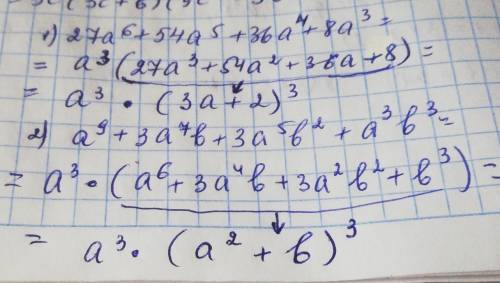 1) 27a⁶+54a⁵+36a⁴+8a³=
= a³(27a³+54a²+36a+8)=
= a³ · (3a+2)³
2) a⁹+3a⁷b+3a⁵b²+a³b³=
= a³·(a⁶+3a⁴b+3a²b²+b³)=
= a³·(a²+b)³